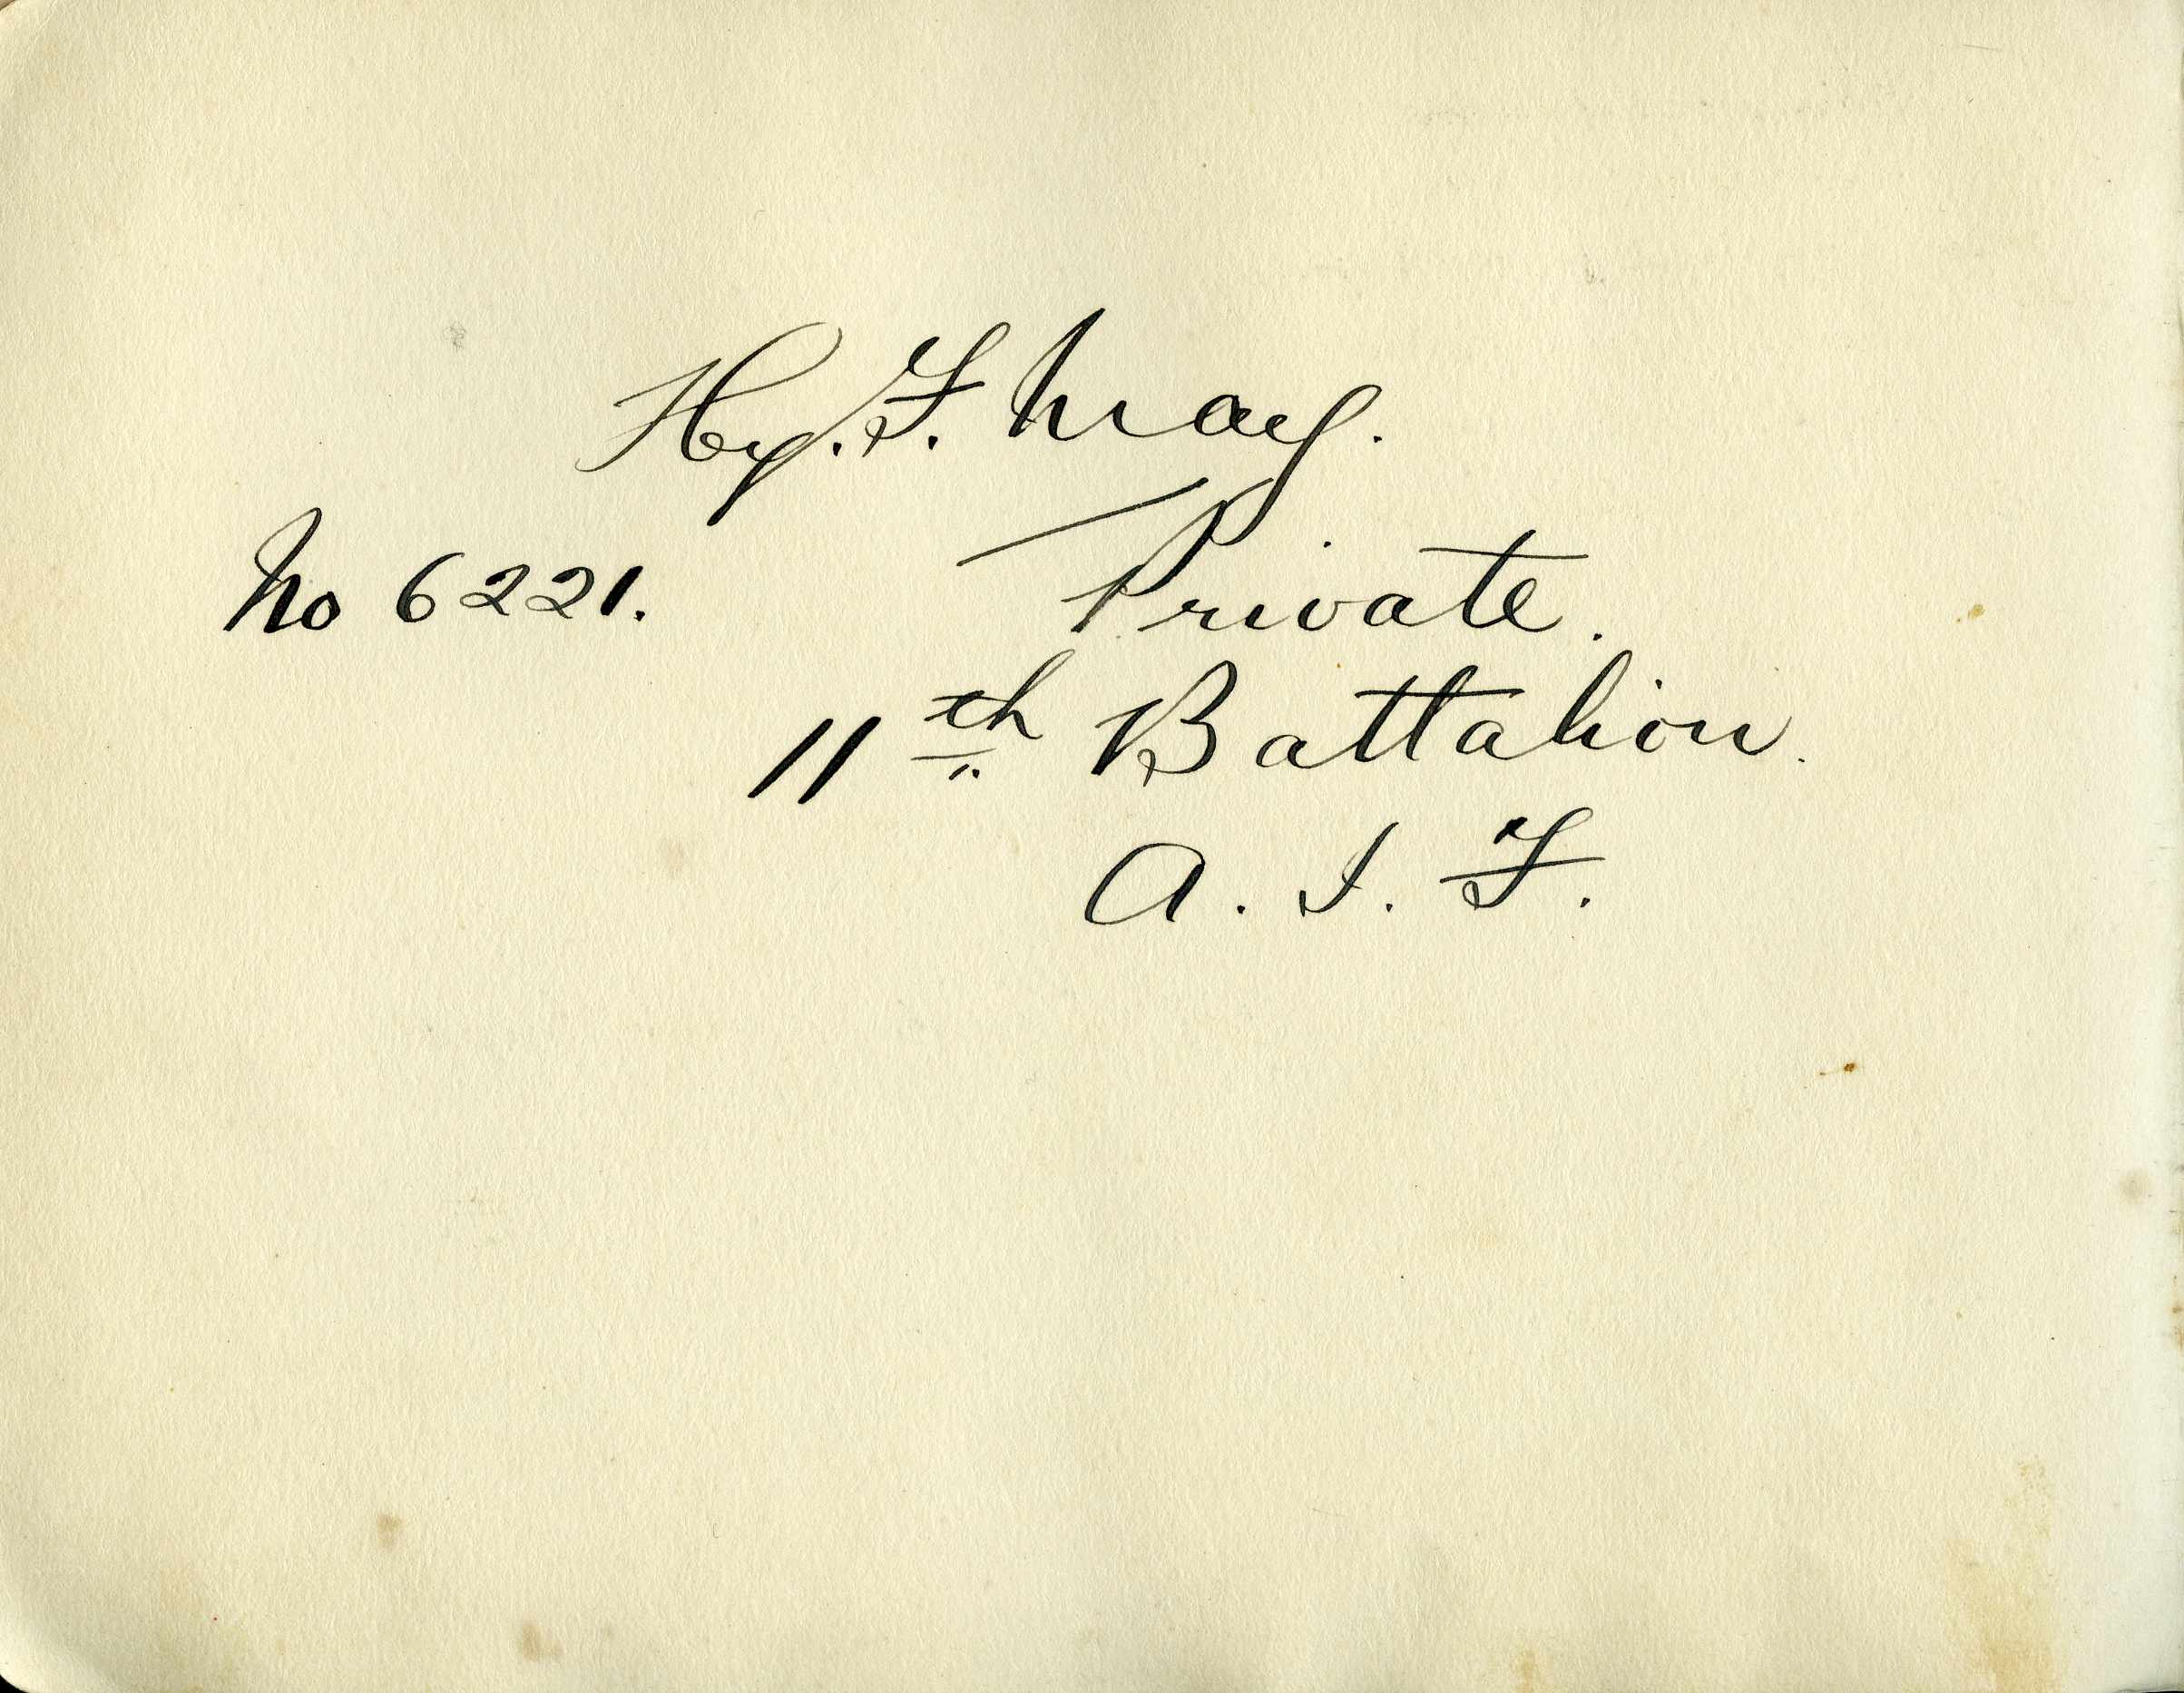 Hy. F. May.
No 6221. Private.
11th Battalion.
A. I. F.